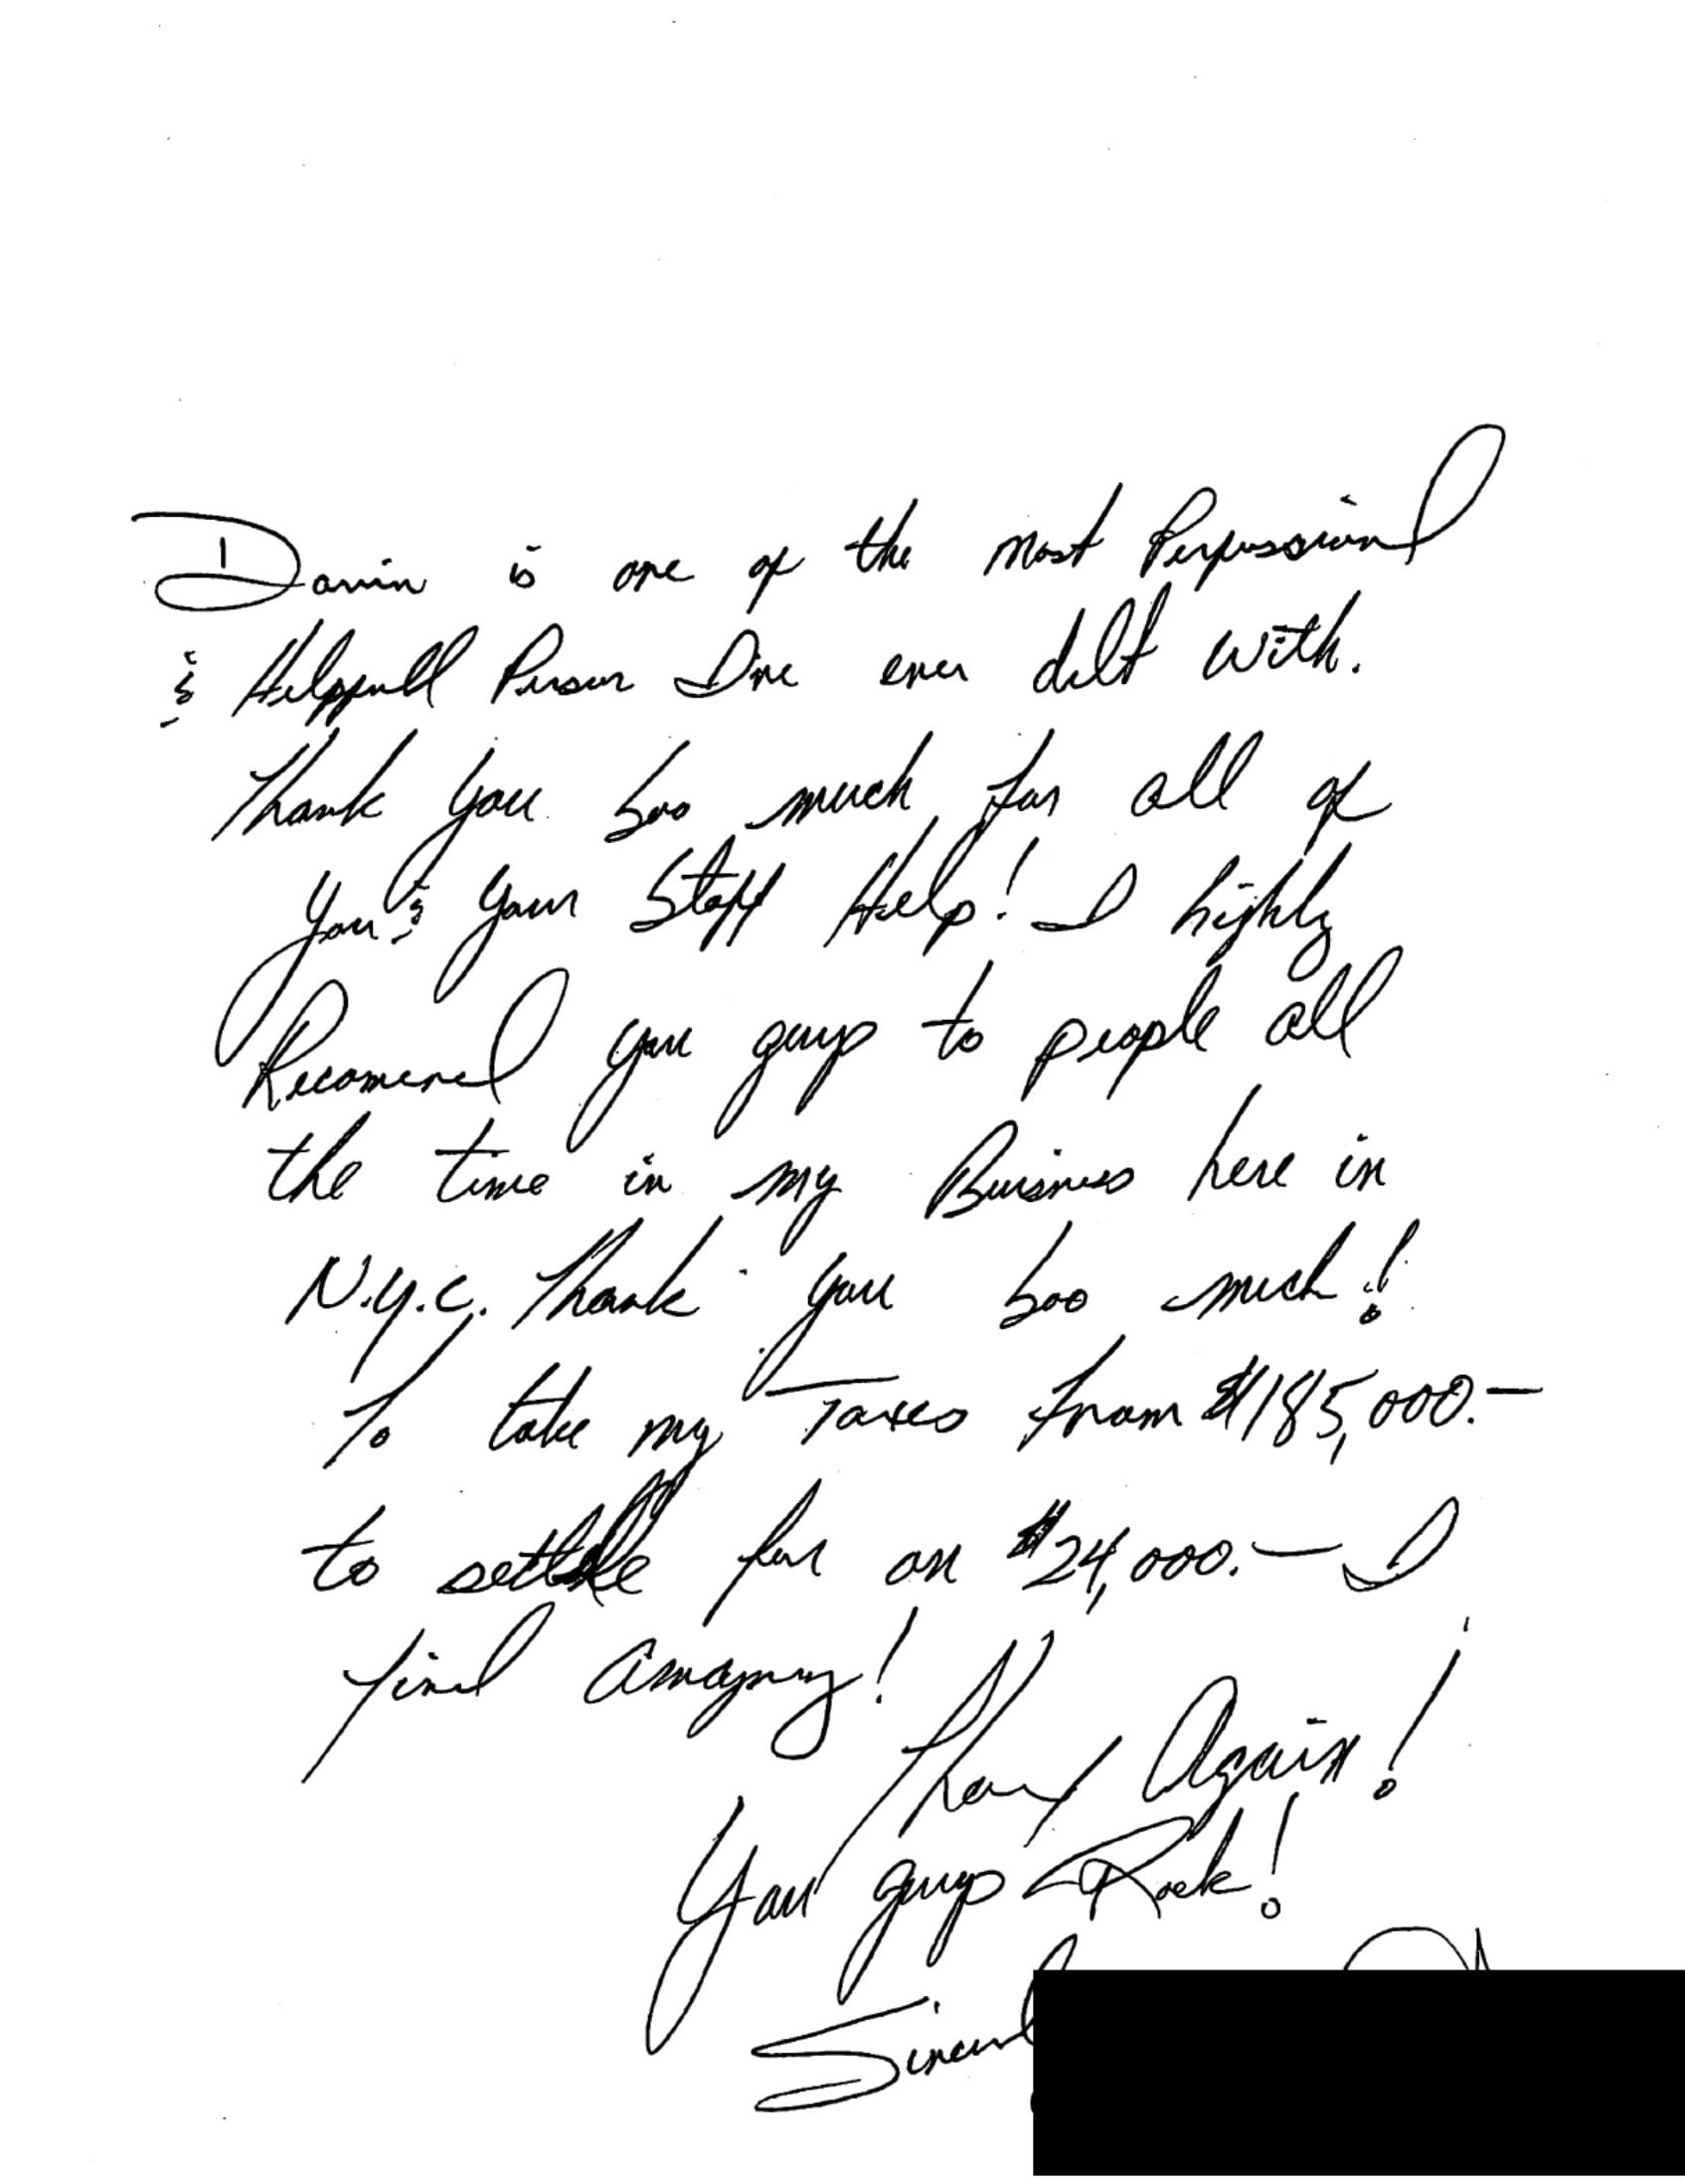 Darrin is one of the most Perfussional
& Helpfull Person I've ever delt with.
Thank you soo much for all of
you & your Staff Help! I highly
Recomend you guys to people all
the time in my Buisness here in
N.Y.C. Thank you soo much!
To take my Taxes from $185,000.—
to settle for an $24,000.— I
find amazing!
Thanx Again!
You guys Rock!